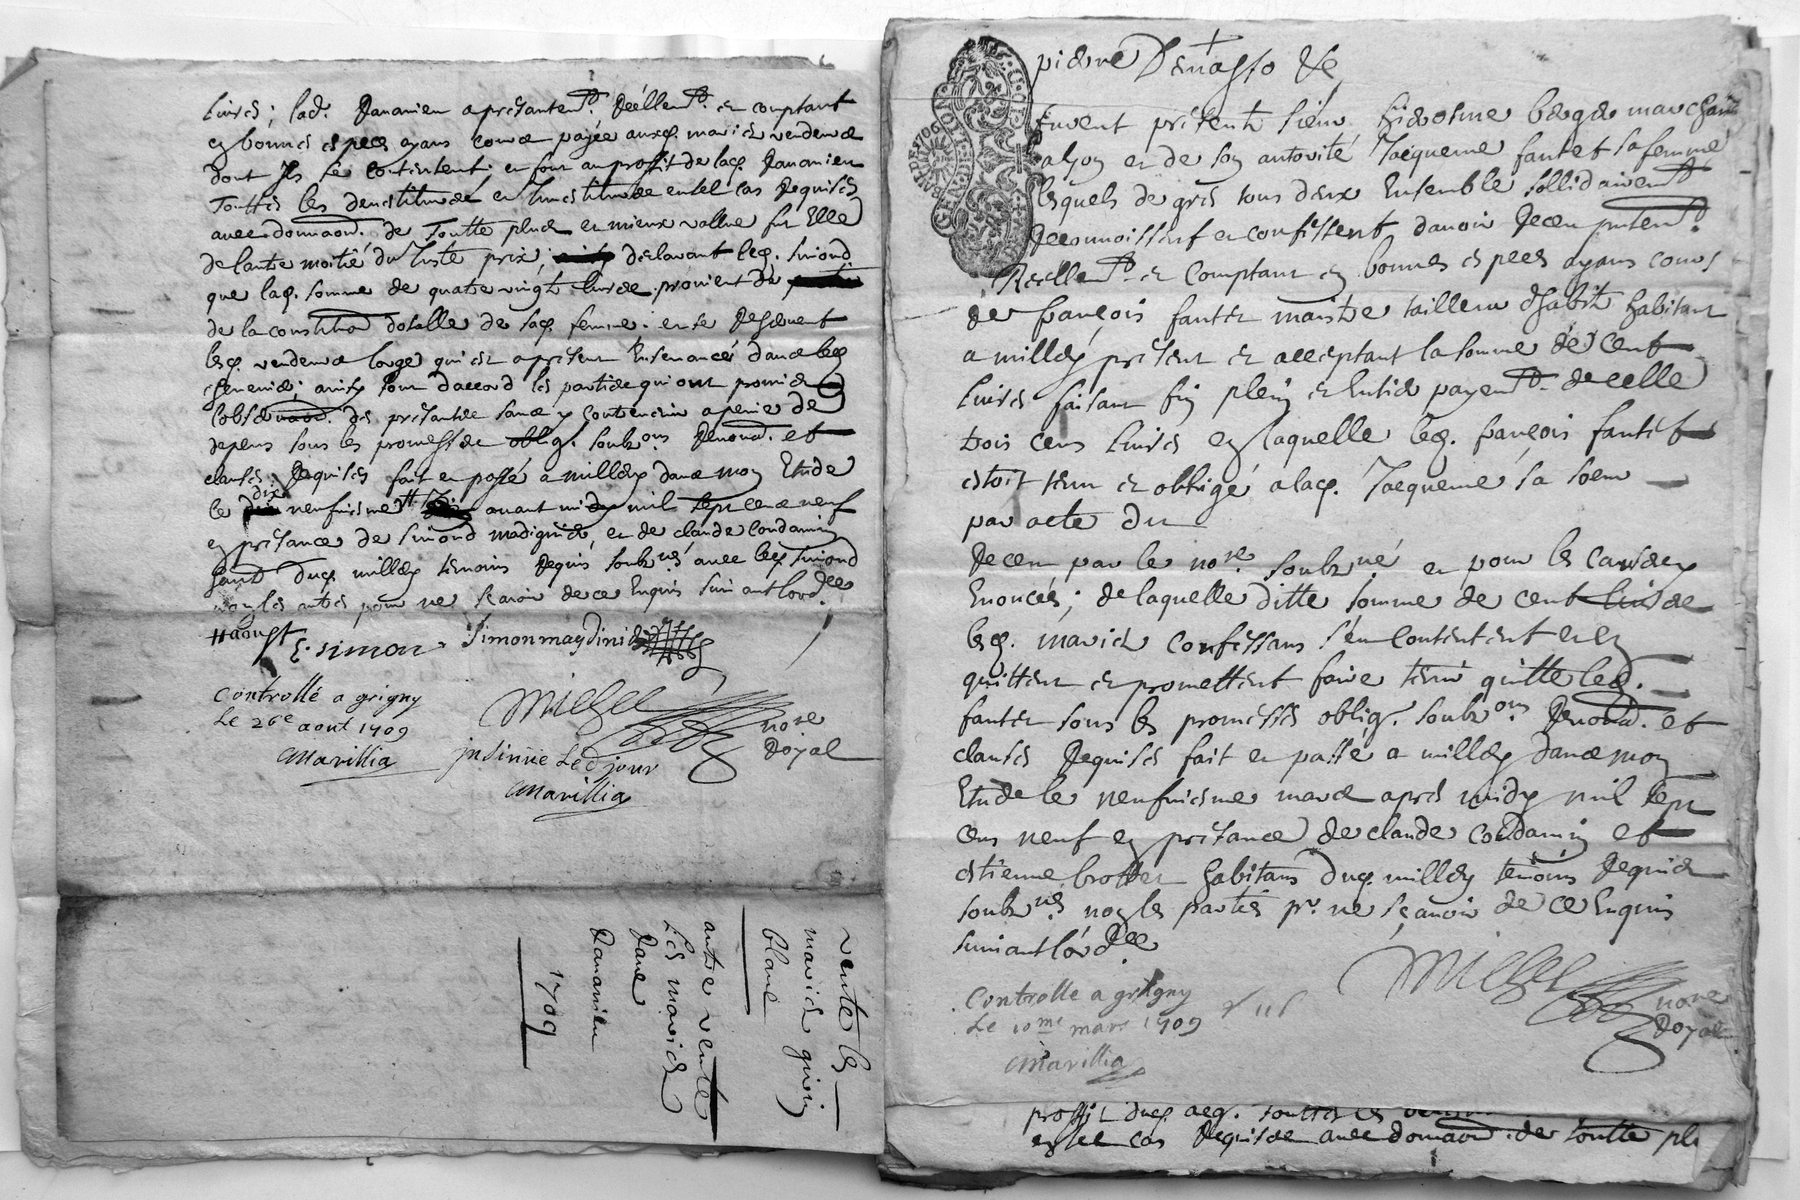 livres; lad. Jananien a presantem.t reéllem.t et comptant
en bonnes especes ayans cours payée auxq. mariés vendeurs
dont ils se contentent; et font au proffit de lad. Jananien
Touttes les devestitures et Investitures en tel cas requises
avec donnaon. de Toutte plus et mieux vallue fut Elle
de lautre moitié du Juste prix; declarant led. simond
que lad. somme de quatre vingt livres provient de
de la constition dotalle de sad. femme. et se reservent
lesd. vendeurs
ainsy sont daccord les parties qui ont promis
lobservaon. des presantes sans y contrevenir a peine de
depens sous les promesses oblig. soubz.ons renond. et
clauses requises fait et passé a millery dans mon Etude
le dix neufviesme avant midy mil sept cens neuf
en presance de simond madignier, et de claude Condamin
habit. dud. millery temoins requis soubz.nés avec led. simond
non les autres pour ne sçavoir de ce Enquis suivant lord.ce
# aoust E. simon simon maydinié
Controllé a grigny
Le 26e aout 1709
Marillia
Michel no.re Royal
insinüé Led jour
Marillia
vente les
mariés
blanc
autre vente
Les mariés
Jananien
1709
GEN. DE LYON
Furent présents sieur hierosme berger marchand
a lyon et de son autorité Jacqueme fantet sa femme
lesquels de gré tous deux Ensemble sollidairem.t
reconnoissent et confessent davoir receu presentem.t
Réellem.t et Comptant en bonnes especes ayans cours
de françois fantet maistre tailleur dhabits habitant
a millery présent et acceptant la somme de cent
livres faisant fin plein et Entier payem.t de celle
trois cens livres en laquelle led. françois fantet
estoit tenu et obligé a lad. Jacqueme sa soeur
par acte du
receu par le no.re soubz.né et pour les causes y
Enoncées; de laquelle ditte somme de cent livres
lesd. mariés confessans s'en contentent et en
quittent et promettent faire tenir quitte led.
fantet sous les promesses oblig. soubz.ons renond. et
clauses requises fait et passé a millery dans mon
Etude le neufviesme mars apres midy mil sept
cens neuf en presance de claude condamin et
estienne brottet habitans dud. millery temoins requis
soubz.nés non les parties p.r ne sçavoir de ce Enquis
suivant lord.ce
Michel no.re Royal
Controllé a grigny
Le 10me mars 1709
Marillia
proffit dud. acq. touttes les
en tel cas requises avec donnaon. de toutte pl